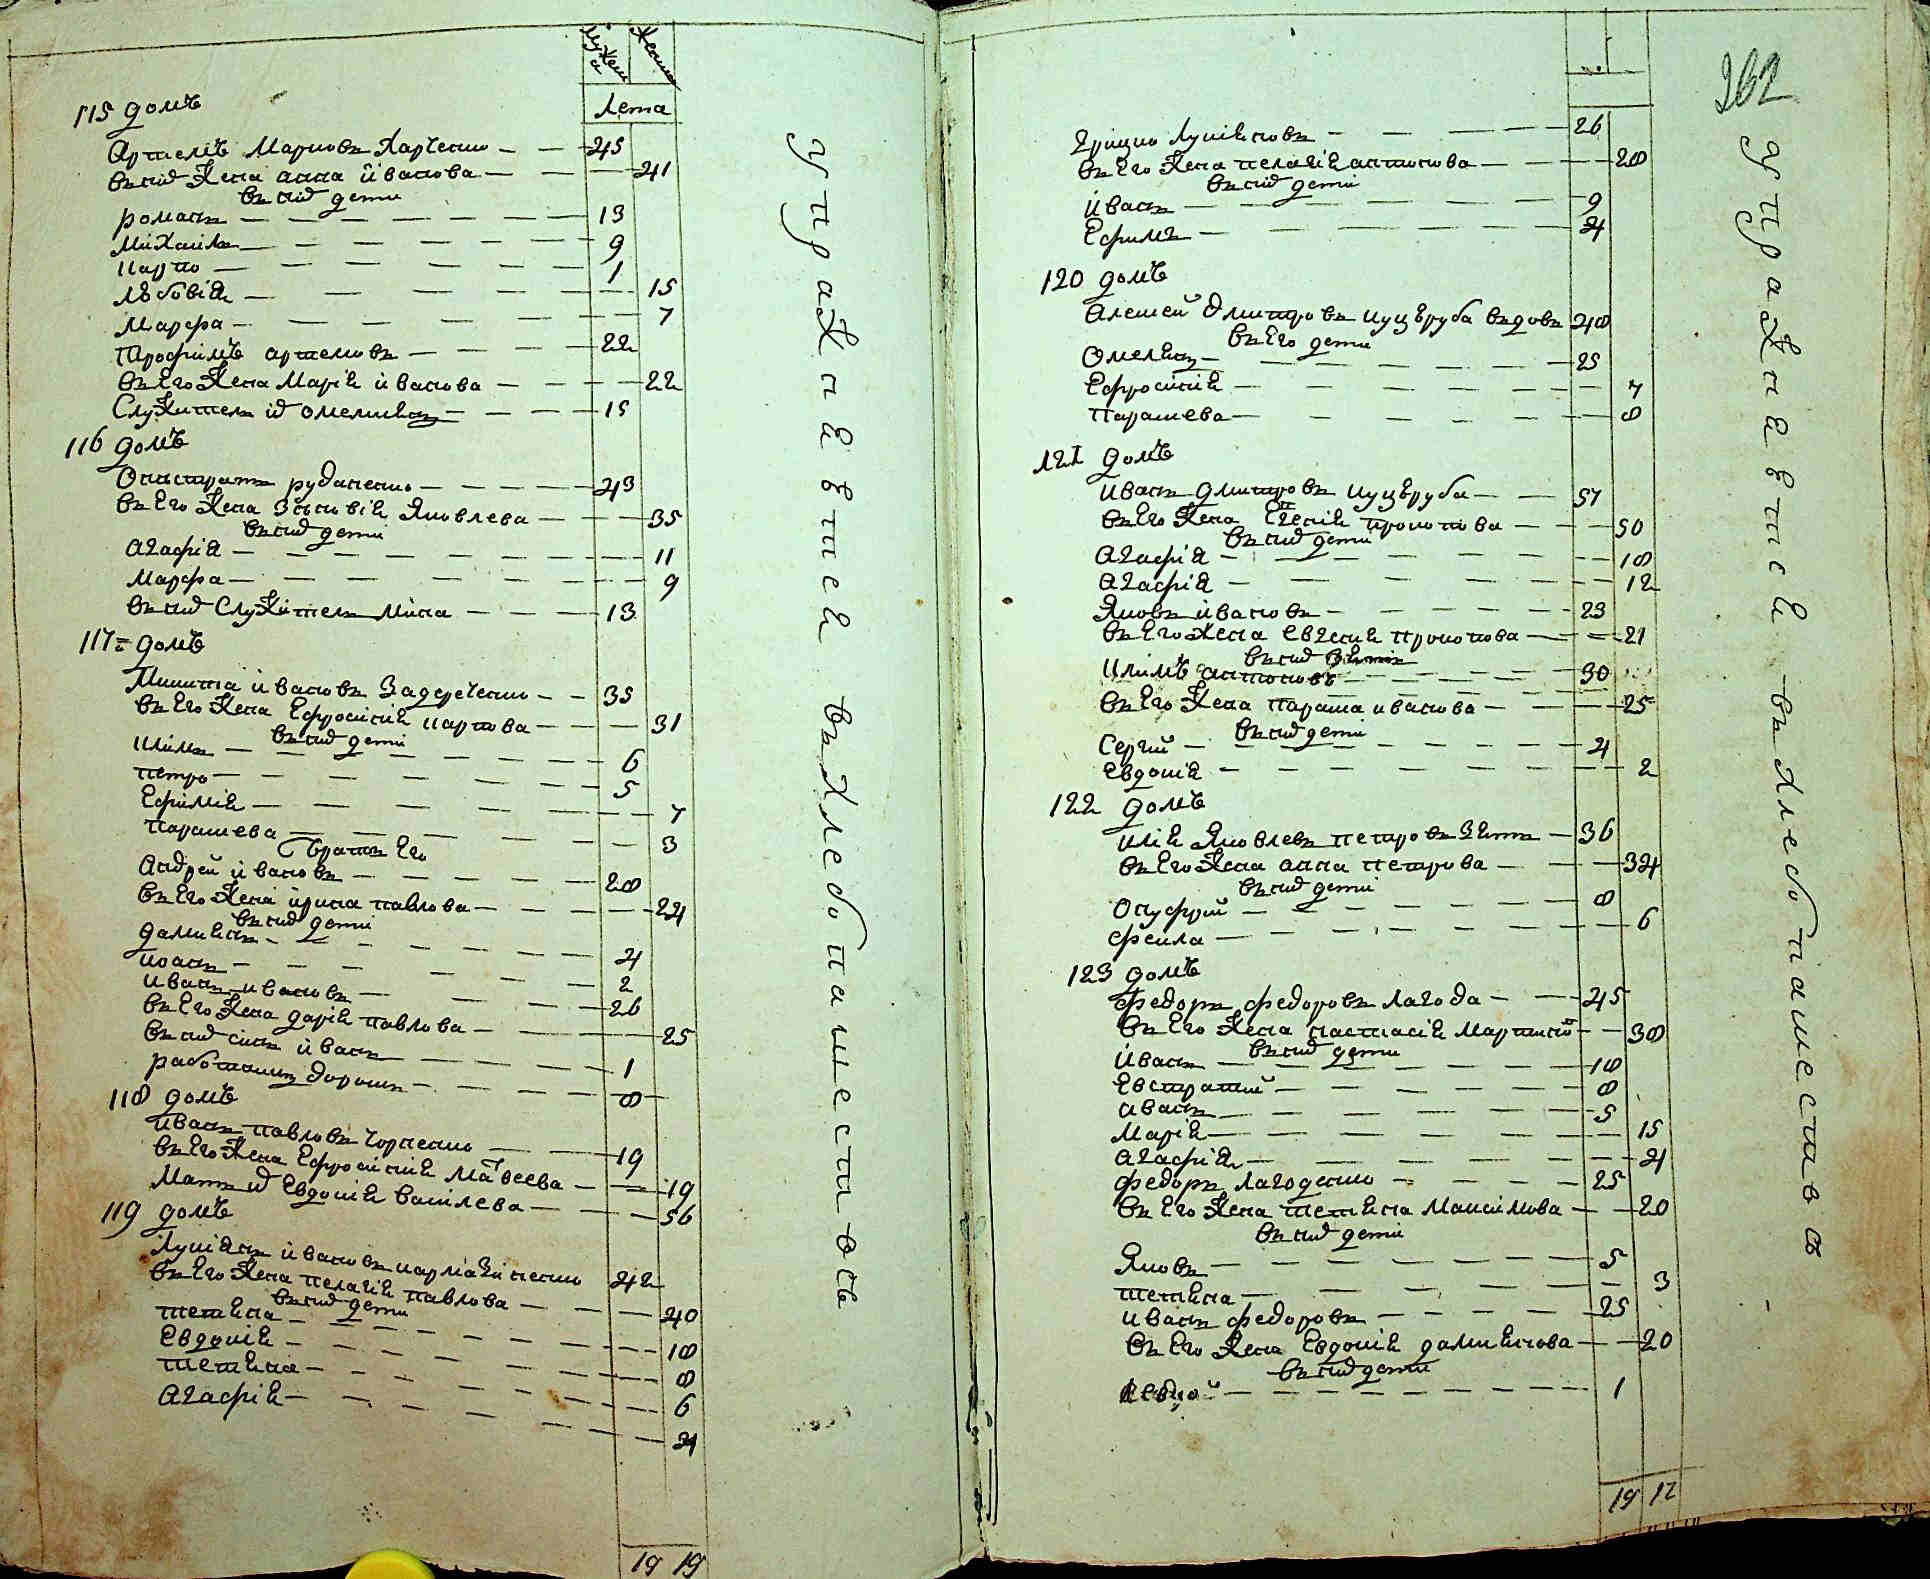 Мужеска Женска
Лета
115 домъ
Артемъ Марковъ Харченко 45
въ нид жена анна иванова 41
въ нид дети
романъ 13
михаила 9
карпо 1
Марфа 7
Трофимъ артемовъ 22
въ его жена Марія иванова 22
Служитель 15
116 домъ
руданенко 43
въ его жена Зѣновія Яковлева 35
въ нид дети
агафія 11
марфа 9
въ нид служитель мина 13
117 домъ
Микита ивановъ Задереченко 35
въ его жена Ефросинія карпова 31
въ нид дети
климъ 6
петро 5
Ефимія 7
парашева 3
братъ его
андрей ивановъ 28
въ его жена ирина павлова 24
въ нид дети
дамиянъ 4
иванъ 2
иванъ ивановъ 26
въ его жена дарія павлова 25
въ нид синъ иванъ 1
работникъ дорошъ 8
118 домъ
иванъ павловъ Чорненко 19
въ его жена Ефросинія матвеева 19
мать ид Евдокія василева 56
119 домъ
Лукіянъ ивановъ кармазіненко 42
въ его жена пелагія павлова 40
въ нид дети
тетяна 18
Евдокія 8
тетяна 6
агафія 4
19 19
упражняется въ хлебопашествѣ
262
грицко лукіяновъ 26
въ его жена пелагія антонова 28
въ нид дети
иванъ 9
Ефимъ 4
120 домъ
алексей дмитровъ куцѣруба вдовъ 48
въ его дети
омелянъ 25
Ефросинія 7
парашева 8
121 домъ
иванъ дмитровъ куцѣруба 57
въ его жена прокопова 50
въ нид дети
агафія 18
агафія 12
Яковъ ивановъ 23
въ его жена евгенія прокопова 21
въ нид зять
климъ антоновъ 30
въ его жена параша иванова 25
въ нид дети
Сергій 4
евдокія 2
122 домъ
илія Яковлевъ петровъ зять 36
въ его жена анна петрова 34
въ нид дети
онуфрій 8
фекла 6
123 домъ
федоръ федоровъ лагода 45
въ его жена настасія мартинов 38
въ нид дети
иванъ 18
Евстратій 8
иванъ 5
марія 15
агафія 4
федоръ лагоденко 25
въ его жена тетяна максимова 20
въ нид дети
Яковъ 5
тетяна 3
иванъ федоровъ 25
въ его жена Евдокія дамиянова 20
въ нид дети
1
19 17
упражняется въ хлебопашествѣ